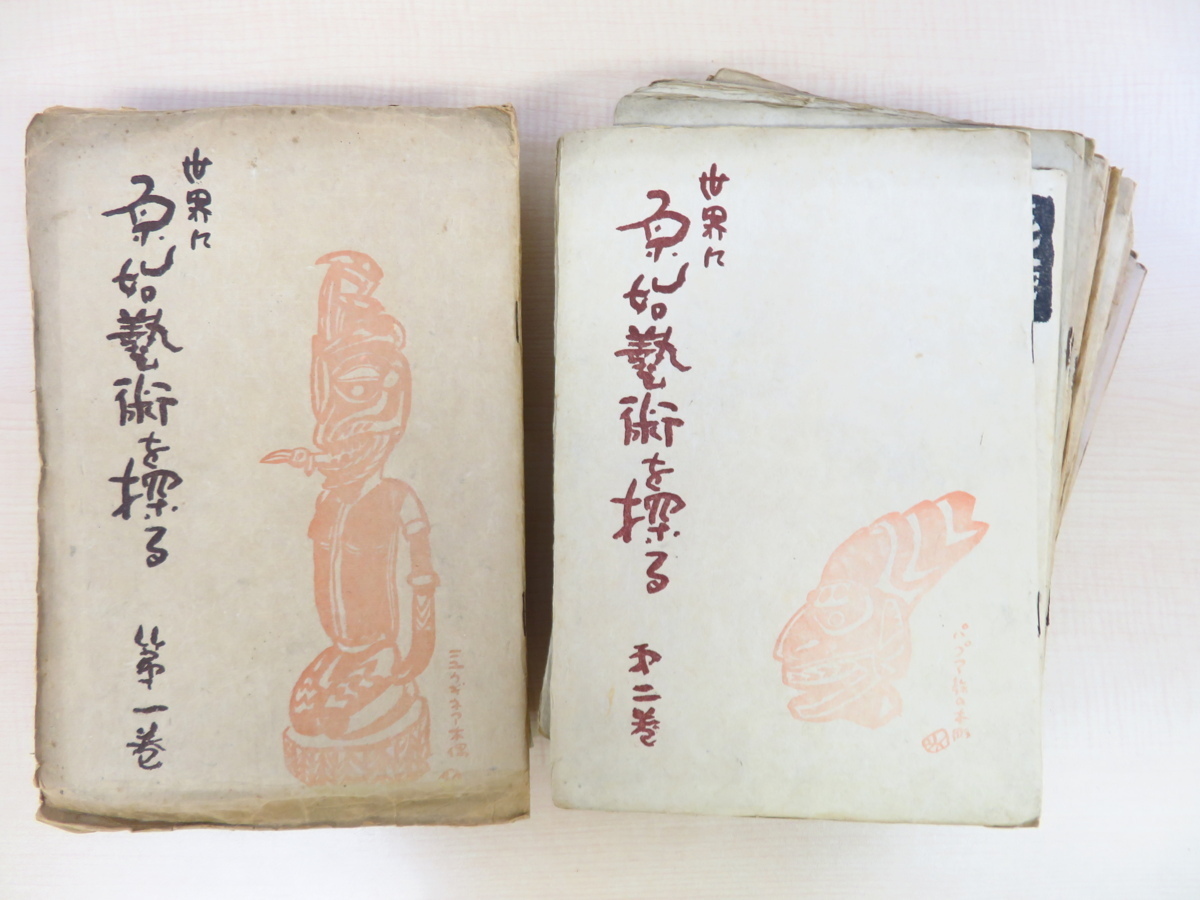 世界に
原始藝術を探る
第一巻
ニューギネアー木偶
世界に
原始藝術を探る
第二巻
パプア族の木彫